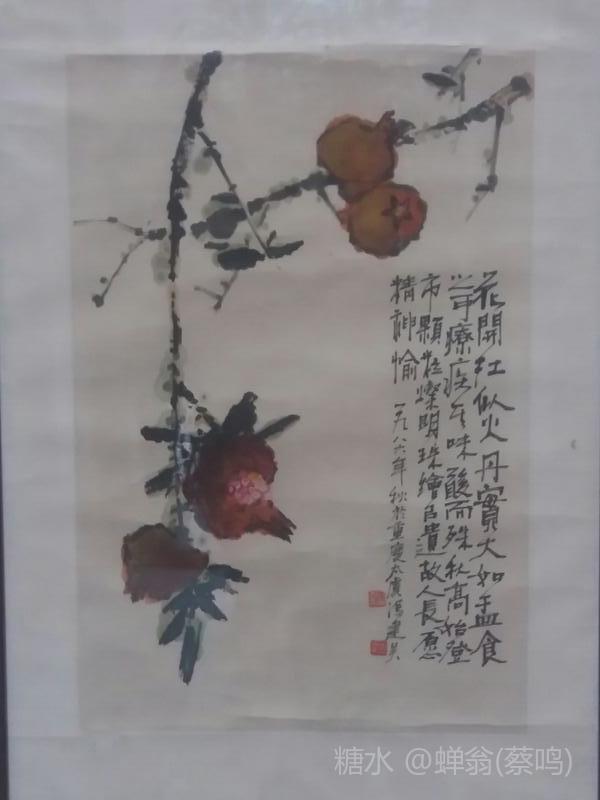 花開红似火丹實大如盂食
之可療疾其味酸而殊秋高始登
市顆粒燦明珠繪呂遺故人長愿
精神愉
一九八六年秋於重慶太虞馮建吴
糖水 @蝉翁(蔡鸣)